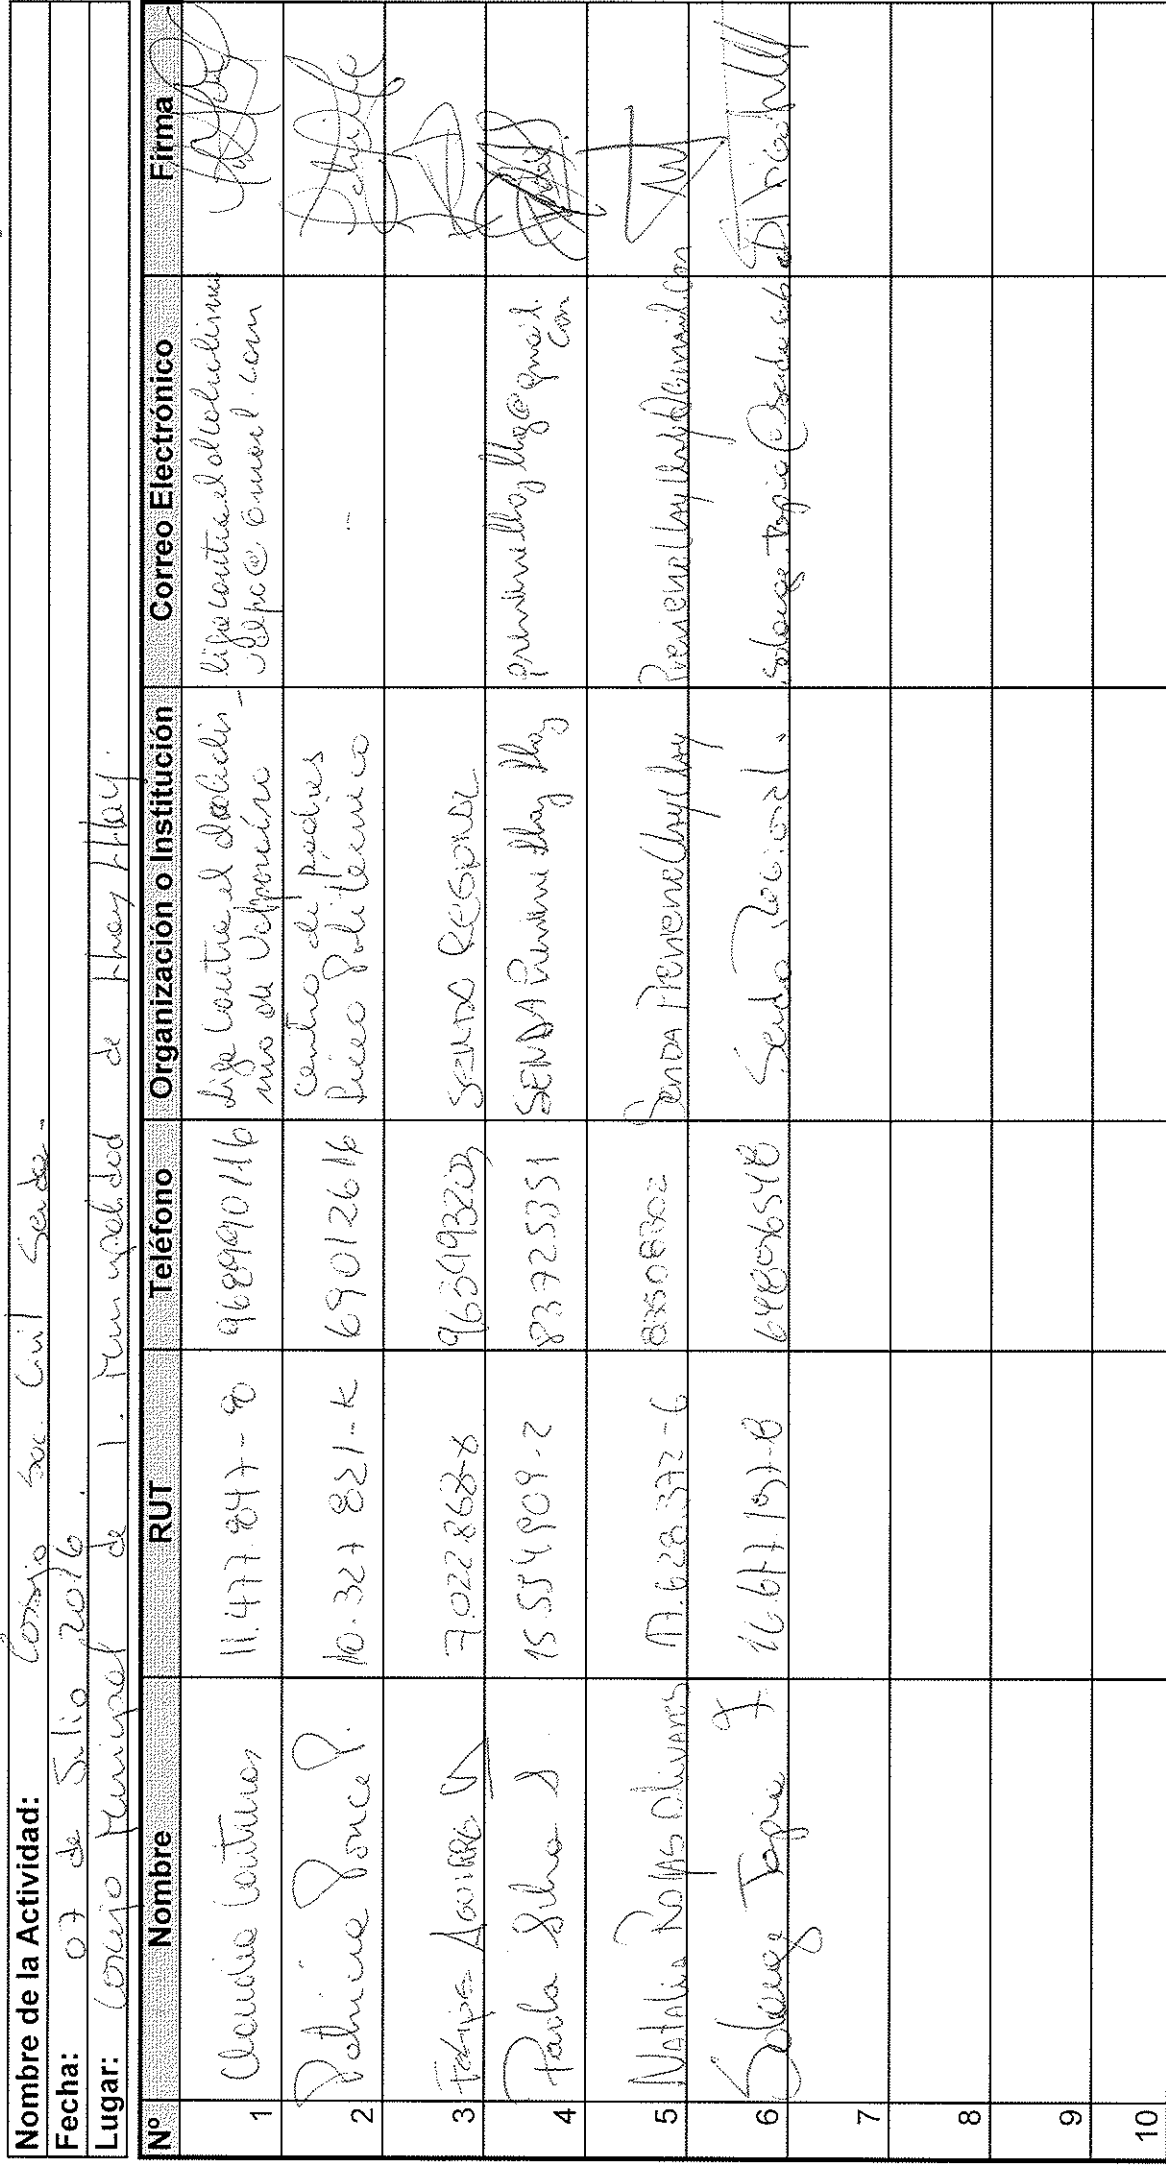 Nombre de la Actividad: Consejo Soc. Civil Senda.
Fecha: 07 de Julio 2016.
Lugar: Concejo Municipal de I. Municipalidad de Llay Llay.
Nº Nombre RUT Teléfono Organización o Institución Correo Electrónico Firma
1 Claudia Contreras 11.477.847-8 968990116 Liga Contra el Alcoholis-
mo de Valparaíso
2 Patricia Ponce P. 10.327 821-K 69012616 Centro de padres
Liceo Politécnico --
3 Felipe Aguirre 7.022868-8 SENDA REGIONAL
4 Paola Silva S. 15.554909-2 83725351 SENDA Previene Llay Llay previenellayllay@gmail.
com
5 Natalia Rojas Olivares 17.628.372-6 Senda Previene Llay Llay Previenellayllay@gmail.com
6 Solange Tapia Senda Regional.
7
8
9
10